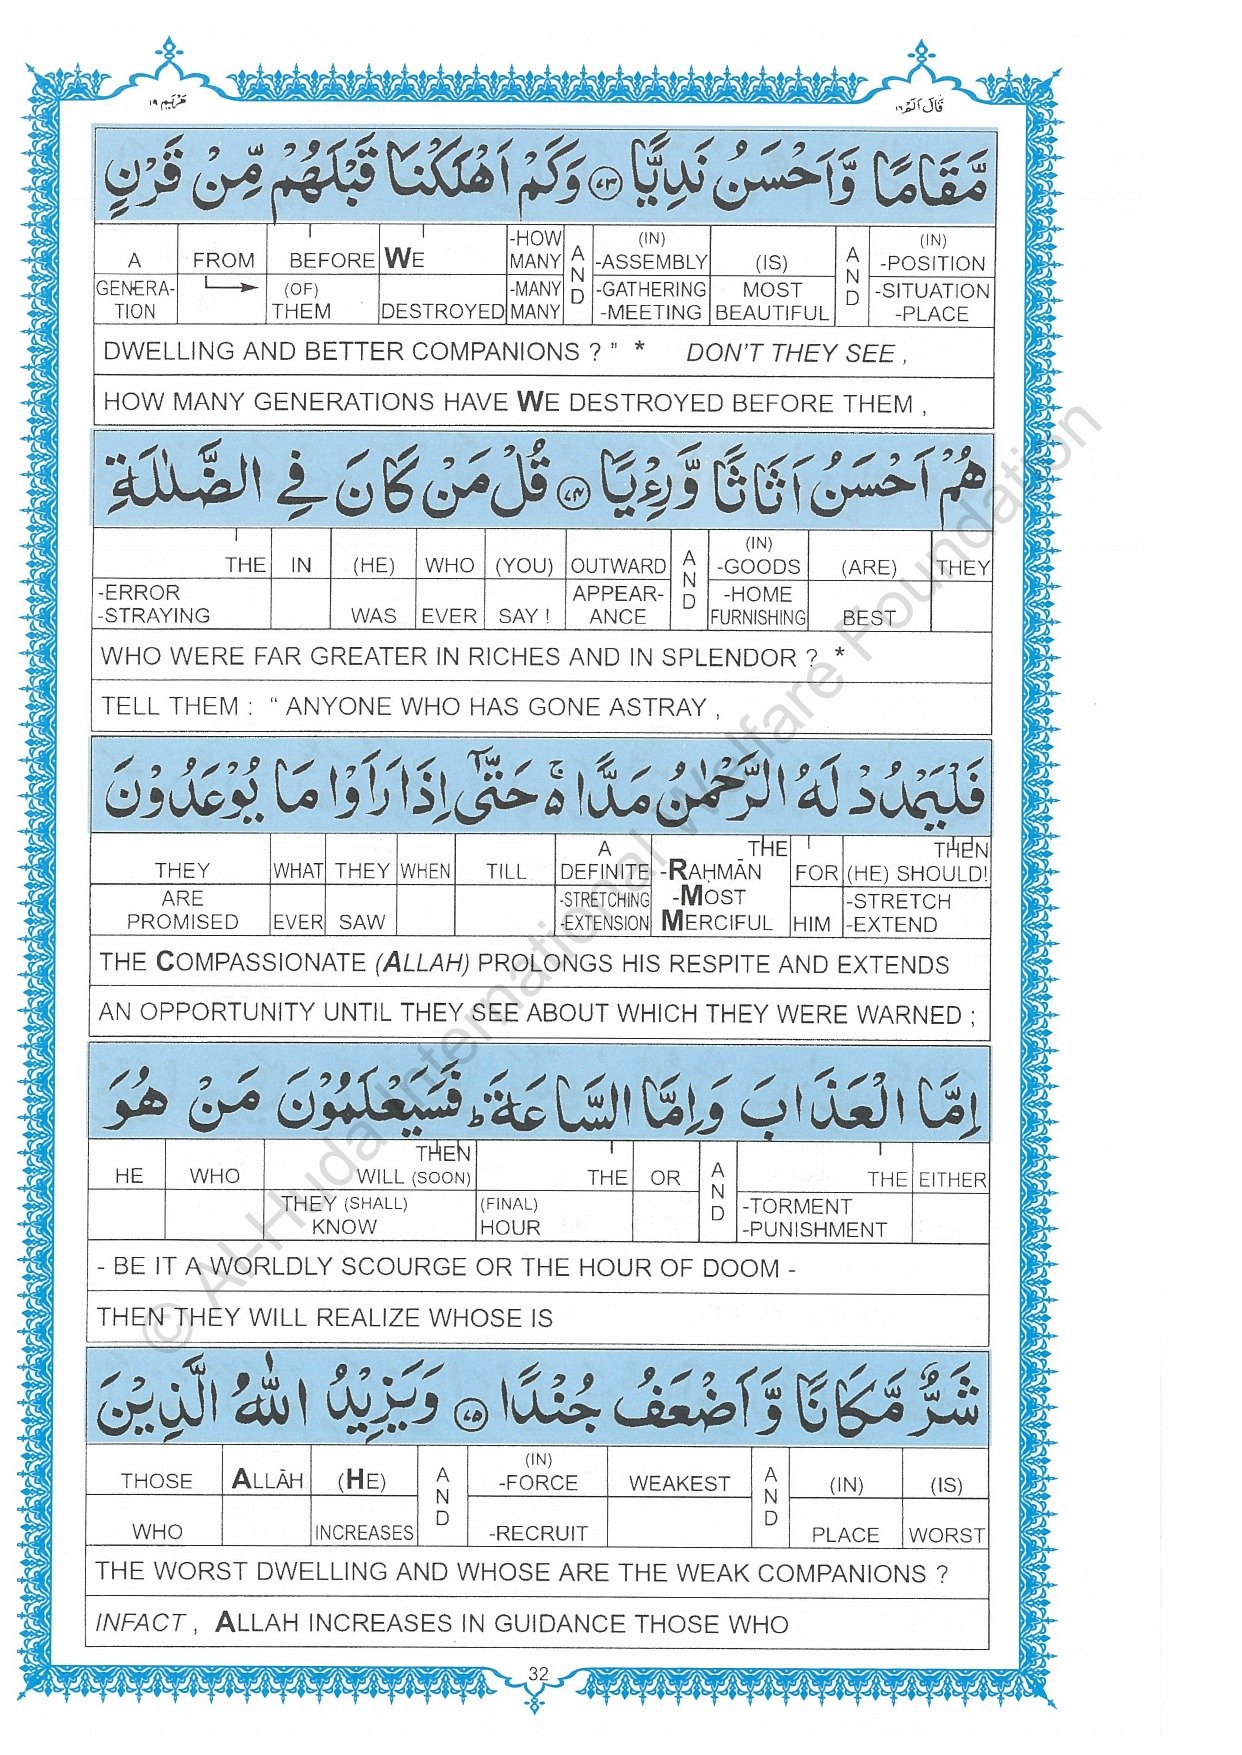 مَرْيَم ١٩
قَالَ اَلَمْ ١٦
مَّقَامًا وَّاَحْسَنُ نَدِيًّا ﴿٧٣﴾ وَكَمْ اَهْلَكْنَا قَبْلَهُمْ مِّنْ قَرْنٍ
A FROM BEFORE WE -HOW MANY AND (IN) -ASSEMBLY (IS) AND (IN) -POSITION
GENERA-TION (OF) THEM DESTROYED -MANY MANY -GATHERING -MEETING MOST BEAUTIFUL -SITUATION -PLACE
DWELLING AND BETTER COMPANIONS ? ” * DON'T THEY SEE ,
HOW MANY GENERATIONS HAVE WE DESTROYED BEFORE THEM ,
هُمْ اَحْسَنُ اَثَاثًا وَّرِءْيًا ﴿٧٤﴾ قُلْ مَنْ كَانَ فِي الضَّلٰلَةِ
THE IN (HE) WHO (YOU) OUTWARD AND (IN) -GOODS (ARE) THEY
-ERROR -STRAYING WAS EVER SAY ! APPEAR-ANCE -HOME FURNISHING BEST
WHO WERE FAR GREATER IN RICHES AND IN SPLENDOR ? *
TELL THEM : “ ANYONE WHO HAS GONE ASTRAY ,
فَلْيَمْدُدْ لَهُ الرَّحْمٰنُ مَدًّا ۬ۚ حَتّٰٓى اِذَا رَاَوْا مَا يُوْعَدُوْنَ
THEY WHAT THEY WHEN TILL A DEFINITE THE -RAḤMĀN FOR THEN (HE) SHOULD!
ARE PROMISED EVER SAW -STRETCHING -EXTENSION -MOST MERCIFUL HIM -STRETCH -EXTEND
THE COMPASSIONATE (ALLAH) PROLONGS HIS RESPITE AND EXTENDS
AN OPPORTUNITY UNTIL THEY SEE ABOUT WHICH THEY WERE WARNED ;
اِمَّا الْعَذَابَ وَاِمَّا السَّاعَةَ ؕ فَسَيَعْلَمُوْنَ مَنْ هُوَ
HE WHO THEN WILL (SOON) THE OR AND THE EITHER
THEY (SHALL) KNOW (FINAL) HOUR -TORMENT -PUNISHMENT
- BE IT A WORLDLY SCOURGE OR THE HOUR OF DOOM -
THEN THEY WILL REALIZE WHOSE IS
شَرٌّ مَّكَانًا وَّاَضْعَفُ جُنْدًا ﴿٧٥﴾ وَيَزِيْدُ اللّٰهُ الَّذِيْنَ
THOSE ALLĀH (HE) AND (IN) -FORCE WEAKEST AND (IN) (IS)
WHO INCREASES -RECRUIT PLACE WORST
THE WORST DWELLING AND WHOSE ARE THE WEAK COMPANIONS ?
INFACT , ALLAH INCREASES IN GUIDANCE THOSE WHO
32
© Al-Huda International Welfare Foundation